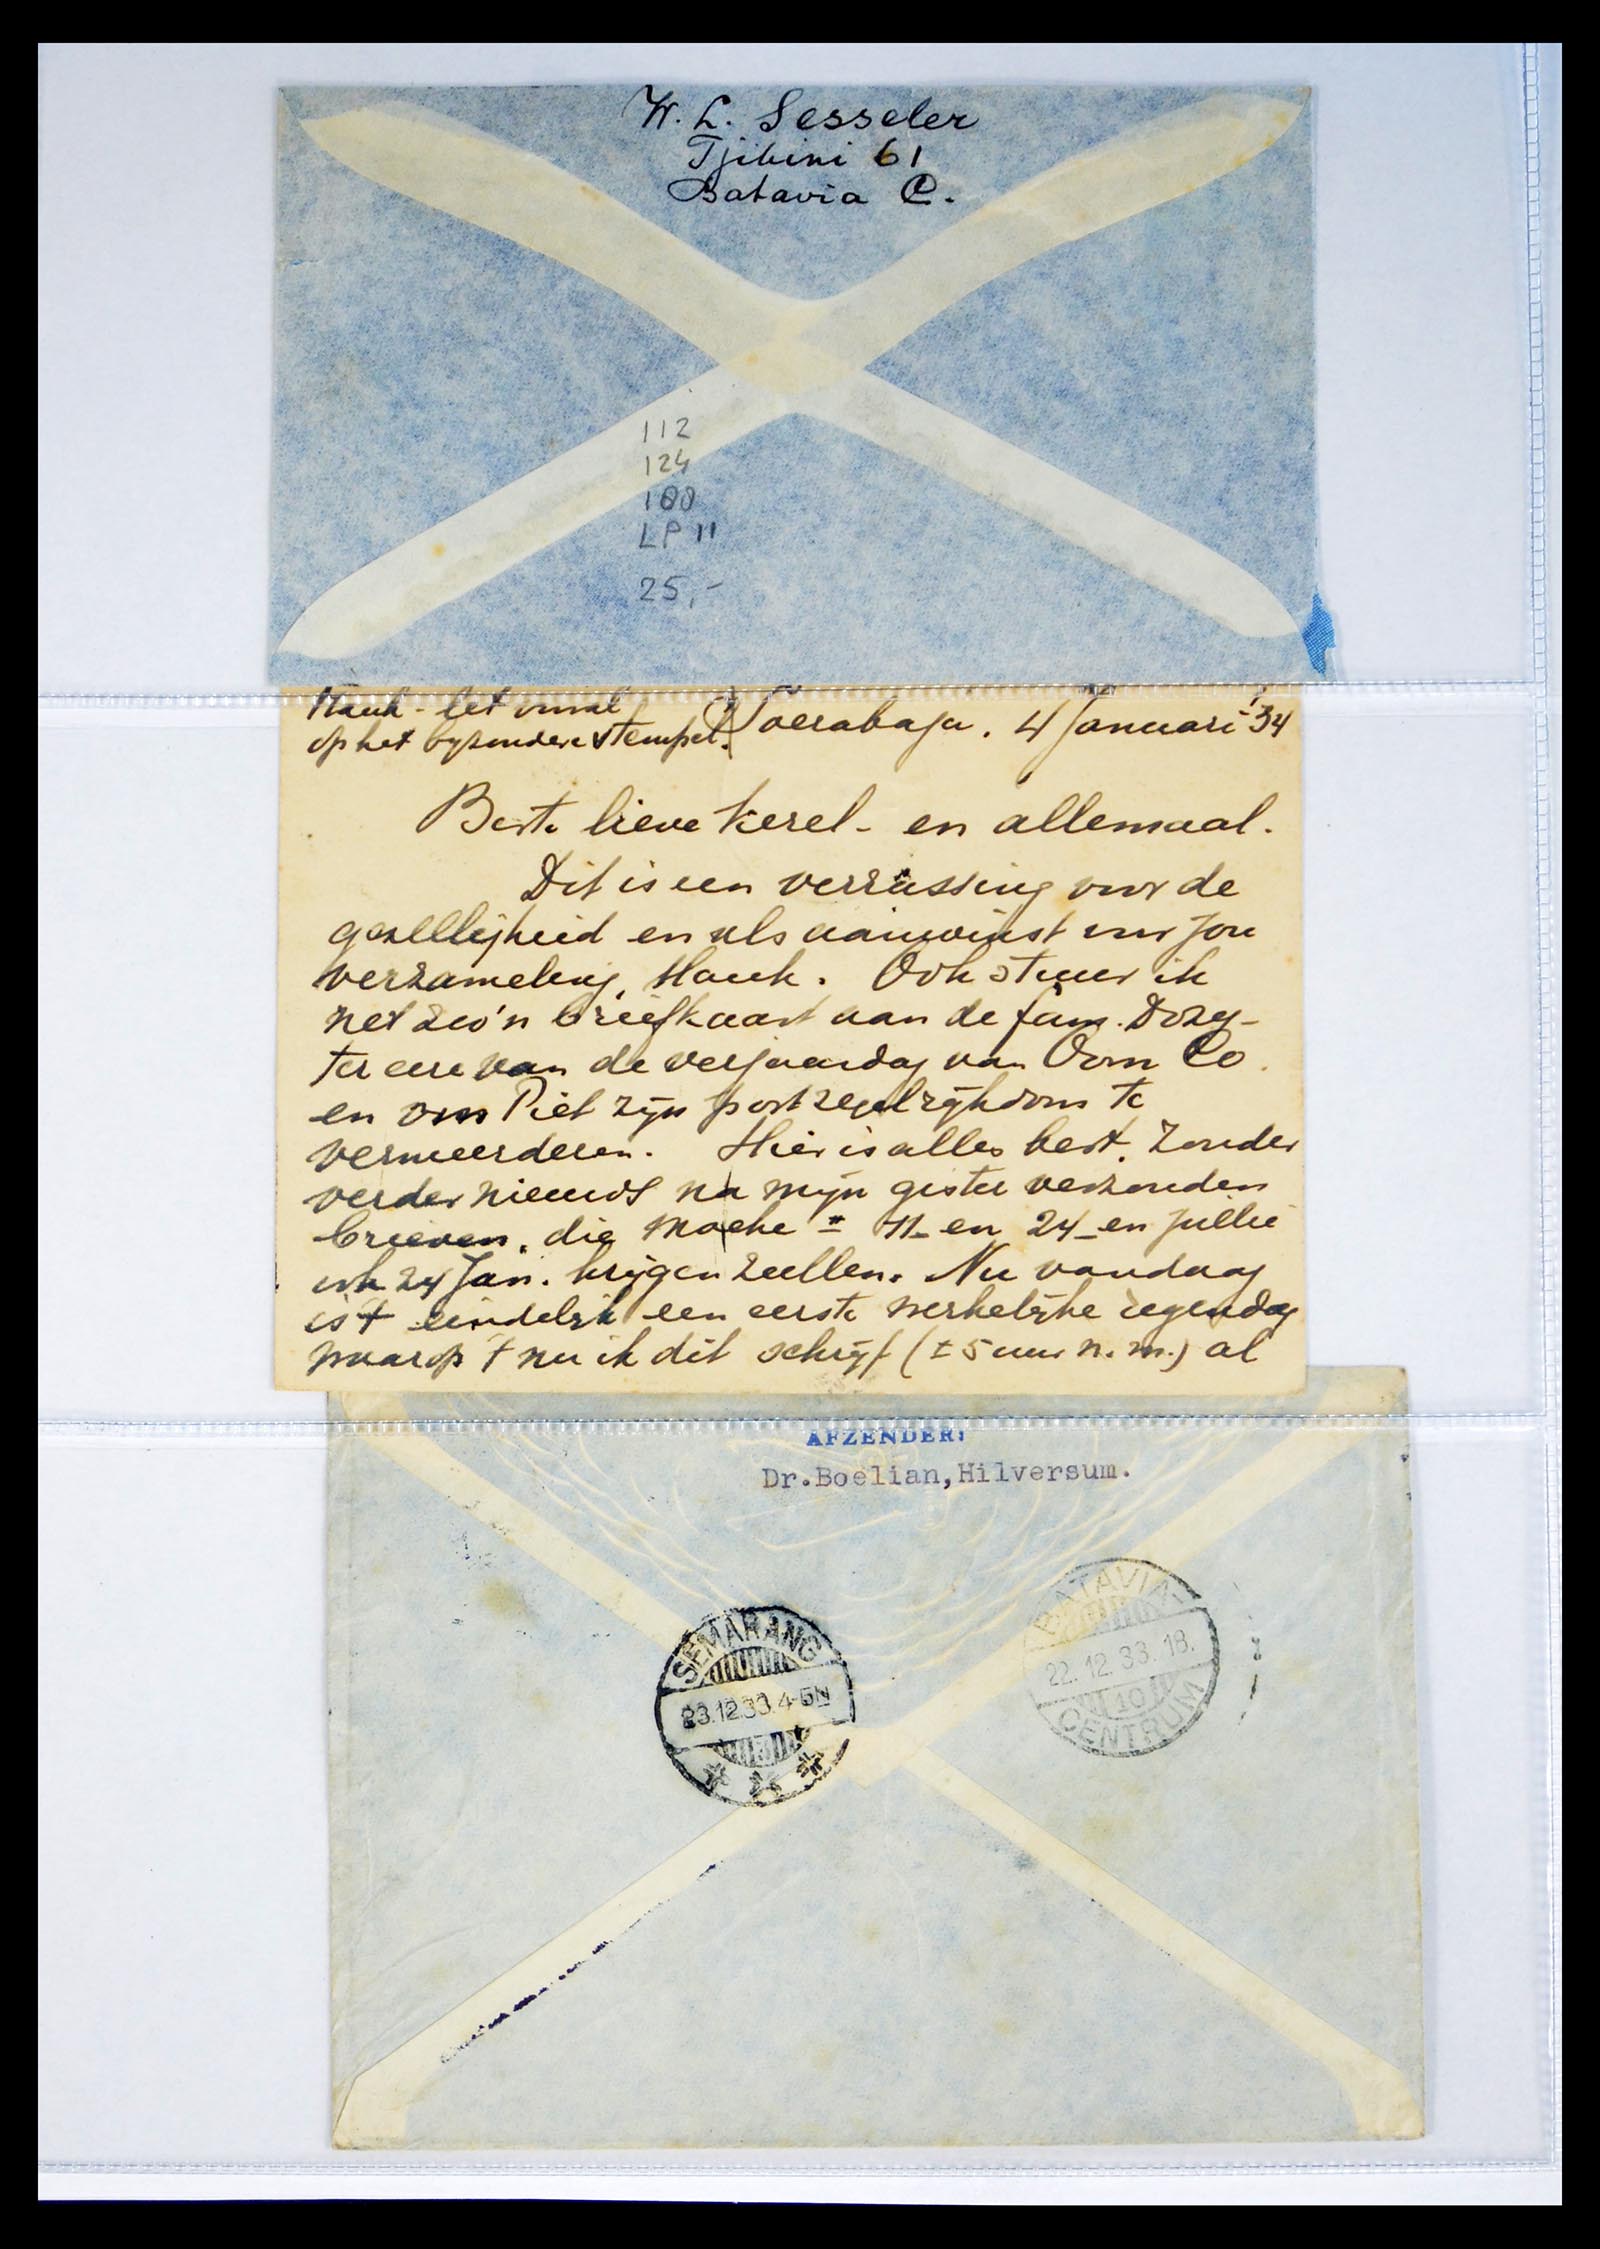 W. L. Sesseler
Tjibini 61
Batavia C.
112
124
180
LP 11
25,-
Hauk - let vooral
op het byzondere stempel.
Soerabaja. 4 Januari '34
Beste lieve kerel - en allemaal.
Dit is een verrassing voor de
gezelligheid en als aanwinst voor jou
verzameling, Hauk. Ook stuur ik
net zoo'n briefkaart aan de fam. Dozy -
ter eere van de verjaardag van Oom Co.
en om Piet zijn postzegelrijkdom te
vermeerderen. Hier is alles best. Zonder
verder nieuws na mijn gister verzonden
brieven, die Moeke = 11- en 24- en jullie
ook 24 Jan. krijgen zullen. Nu vandaag
is 't eindelijk een eerste werkelijke regendag
waarop 't nu ik dit schrijf (± 5 uur n.m.) al
AFZENDER:
Dr.Boelian,Hilversum.
BATAVIA-
22.12.33.18.
10
CENTRUM
SEMARANG
23.12.33.4-5N